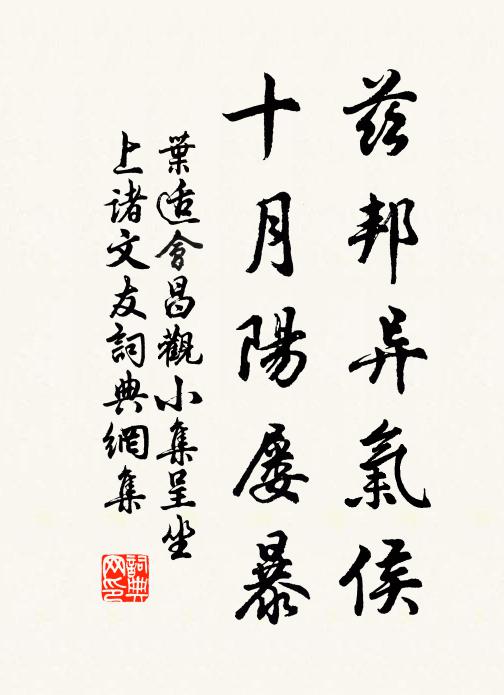 兹邦异氣侯
十月陽屡暴
葉适會昌觀小集呈坐
上諸文友詞典網集
詞典网印